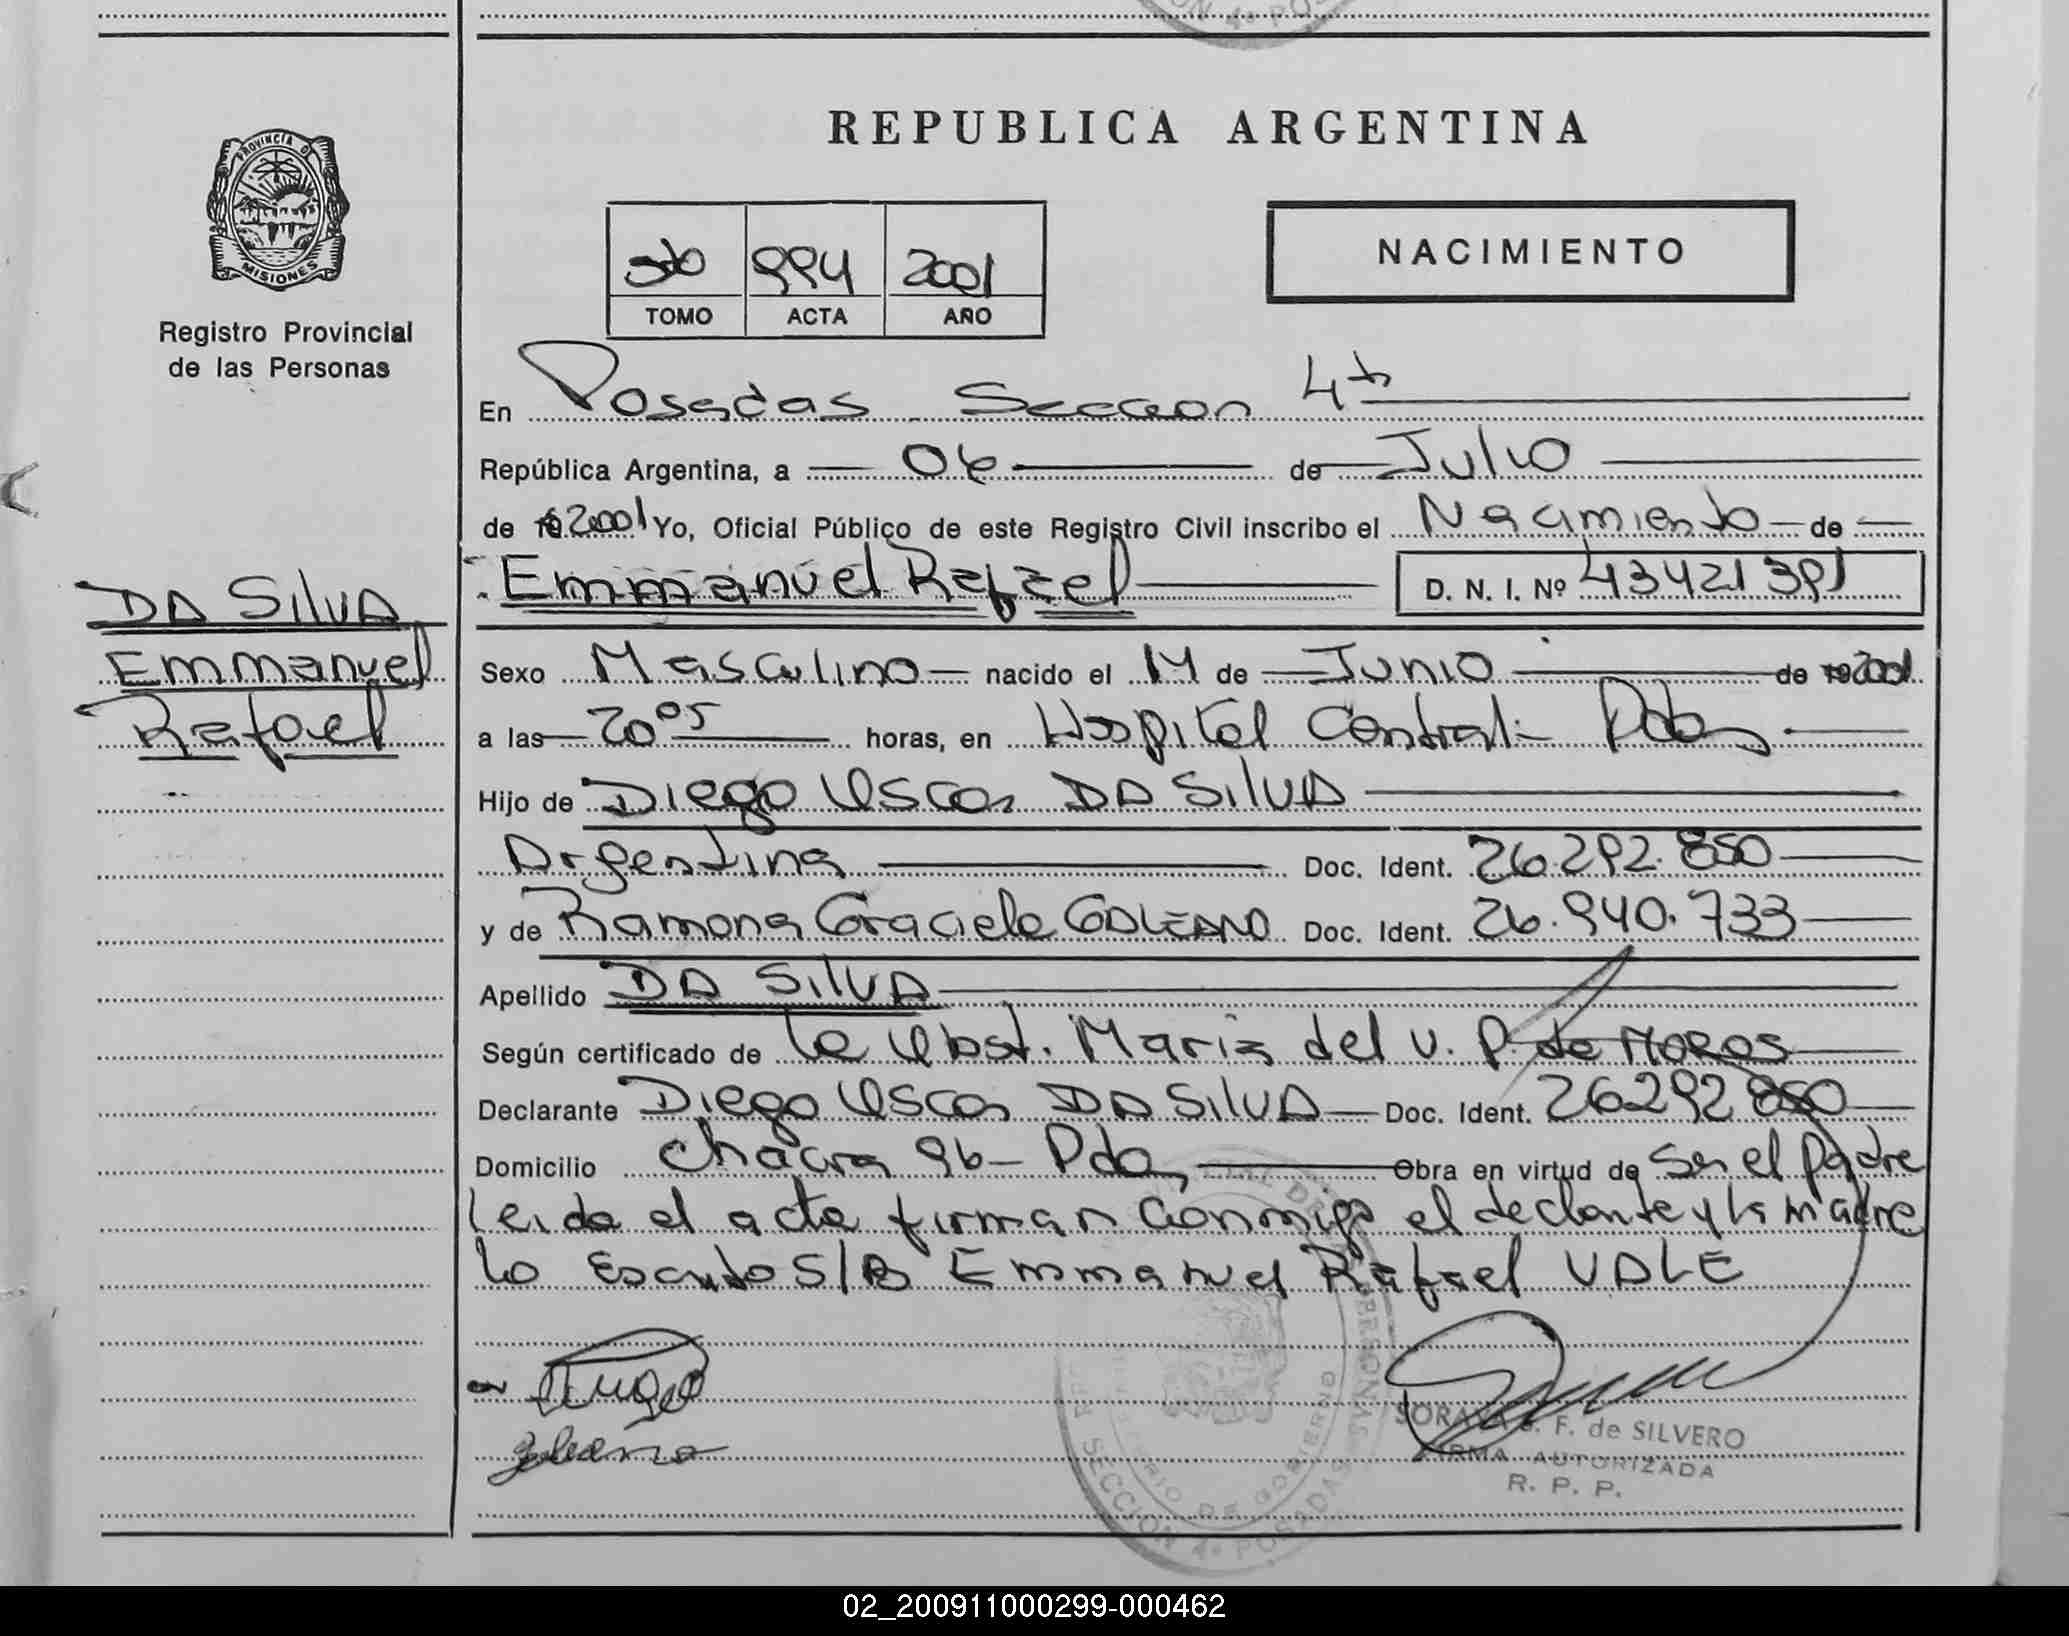 REPUBLICA ARGENTINA
PROVINCIA D
MISIONES
Registro Provincial
de las Personas
994 2001
TOMO ACTA AÑO
NACIMIENTO
En Posadas Seccion 4ta
República Argentina, a 06 de Julio
de 2001 Yo, Oficial Público de este Registro Civil inscribo el Nacimiento de
Emmanuel Rafael D. N. I. Nº 43421391
DA SILVA
Emmanuel
Rafael
Sexo Masculino nacido el 14 de Junio de 2001
a las 20 05 horas, en Hospital Central - Pdas
Hijo de Diego Oscar DA SILVA
Argentina Doc. Ident. 26.292.850
y de Ramona Graciela GALEANO Doc. Ident. 26.940.733
Apellido DA SILVA
Según certificado de la Obst. Maria del V. P. de MOROS
Declarante Diego Oscar DA SILVA Doc. Ident. 26292850
Domicilio chacra 96 - Pdas Obra en virtud de ser el padre
Leida el acta firman conmigo el declante y la madre
Lo Escrito S/B Emmanuel Rafael VALE
SORAYA F. de SILVERO
FIRMA AUTORIZADA
R. P. P.
SECCION 4a POSADAS
02_200911000299-000462